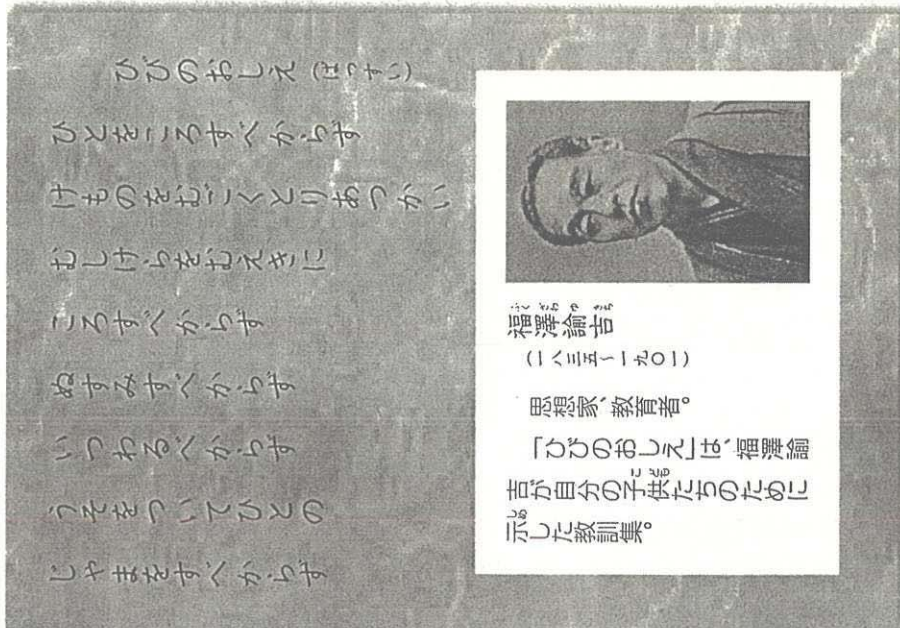 ひびのおしえ (ばっすい)
ひとをころすべからず
けものをむごくとりあつかい
むしけらをむえきに
ころすべからず
ぬすみすべからず
いつわるべからず
うそをついてひとの
じゃまをすべからず
ふくざわゆきち
福澤諭吉
(一八三五〜一九〇一)
思想家、教育者。
「ひびのおしえ」は、福澤諭
こども
吉が自分の子供たちのために
しめ
示した教訓集。